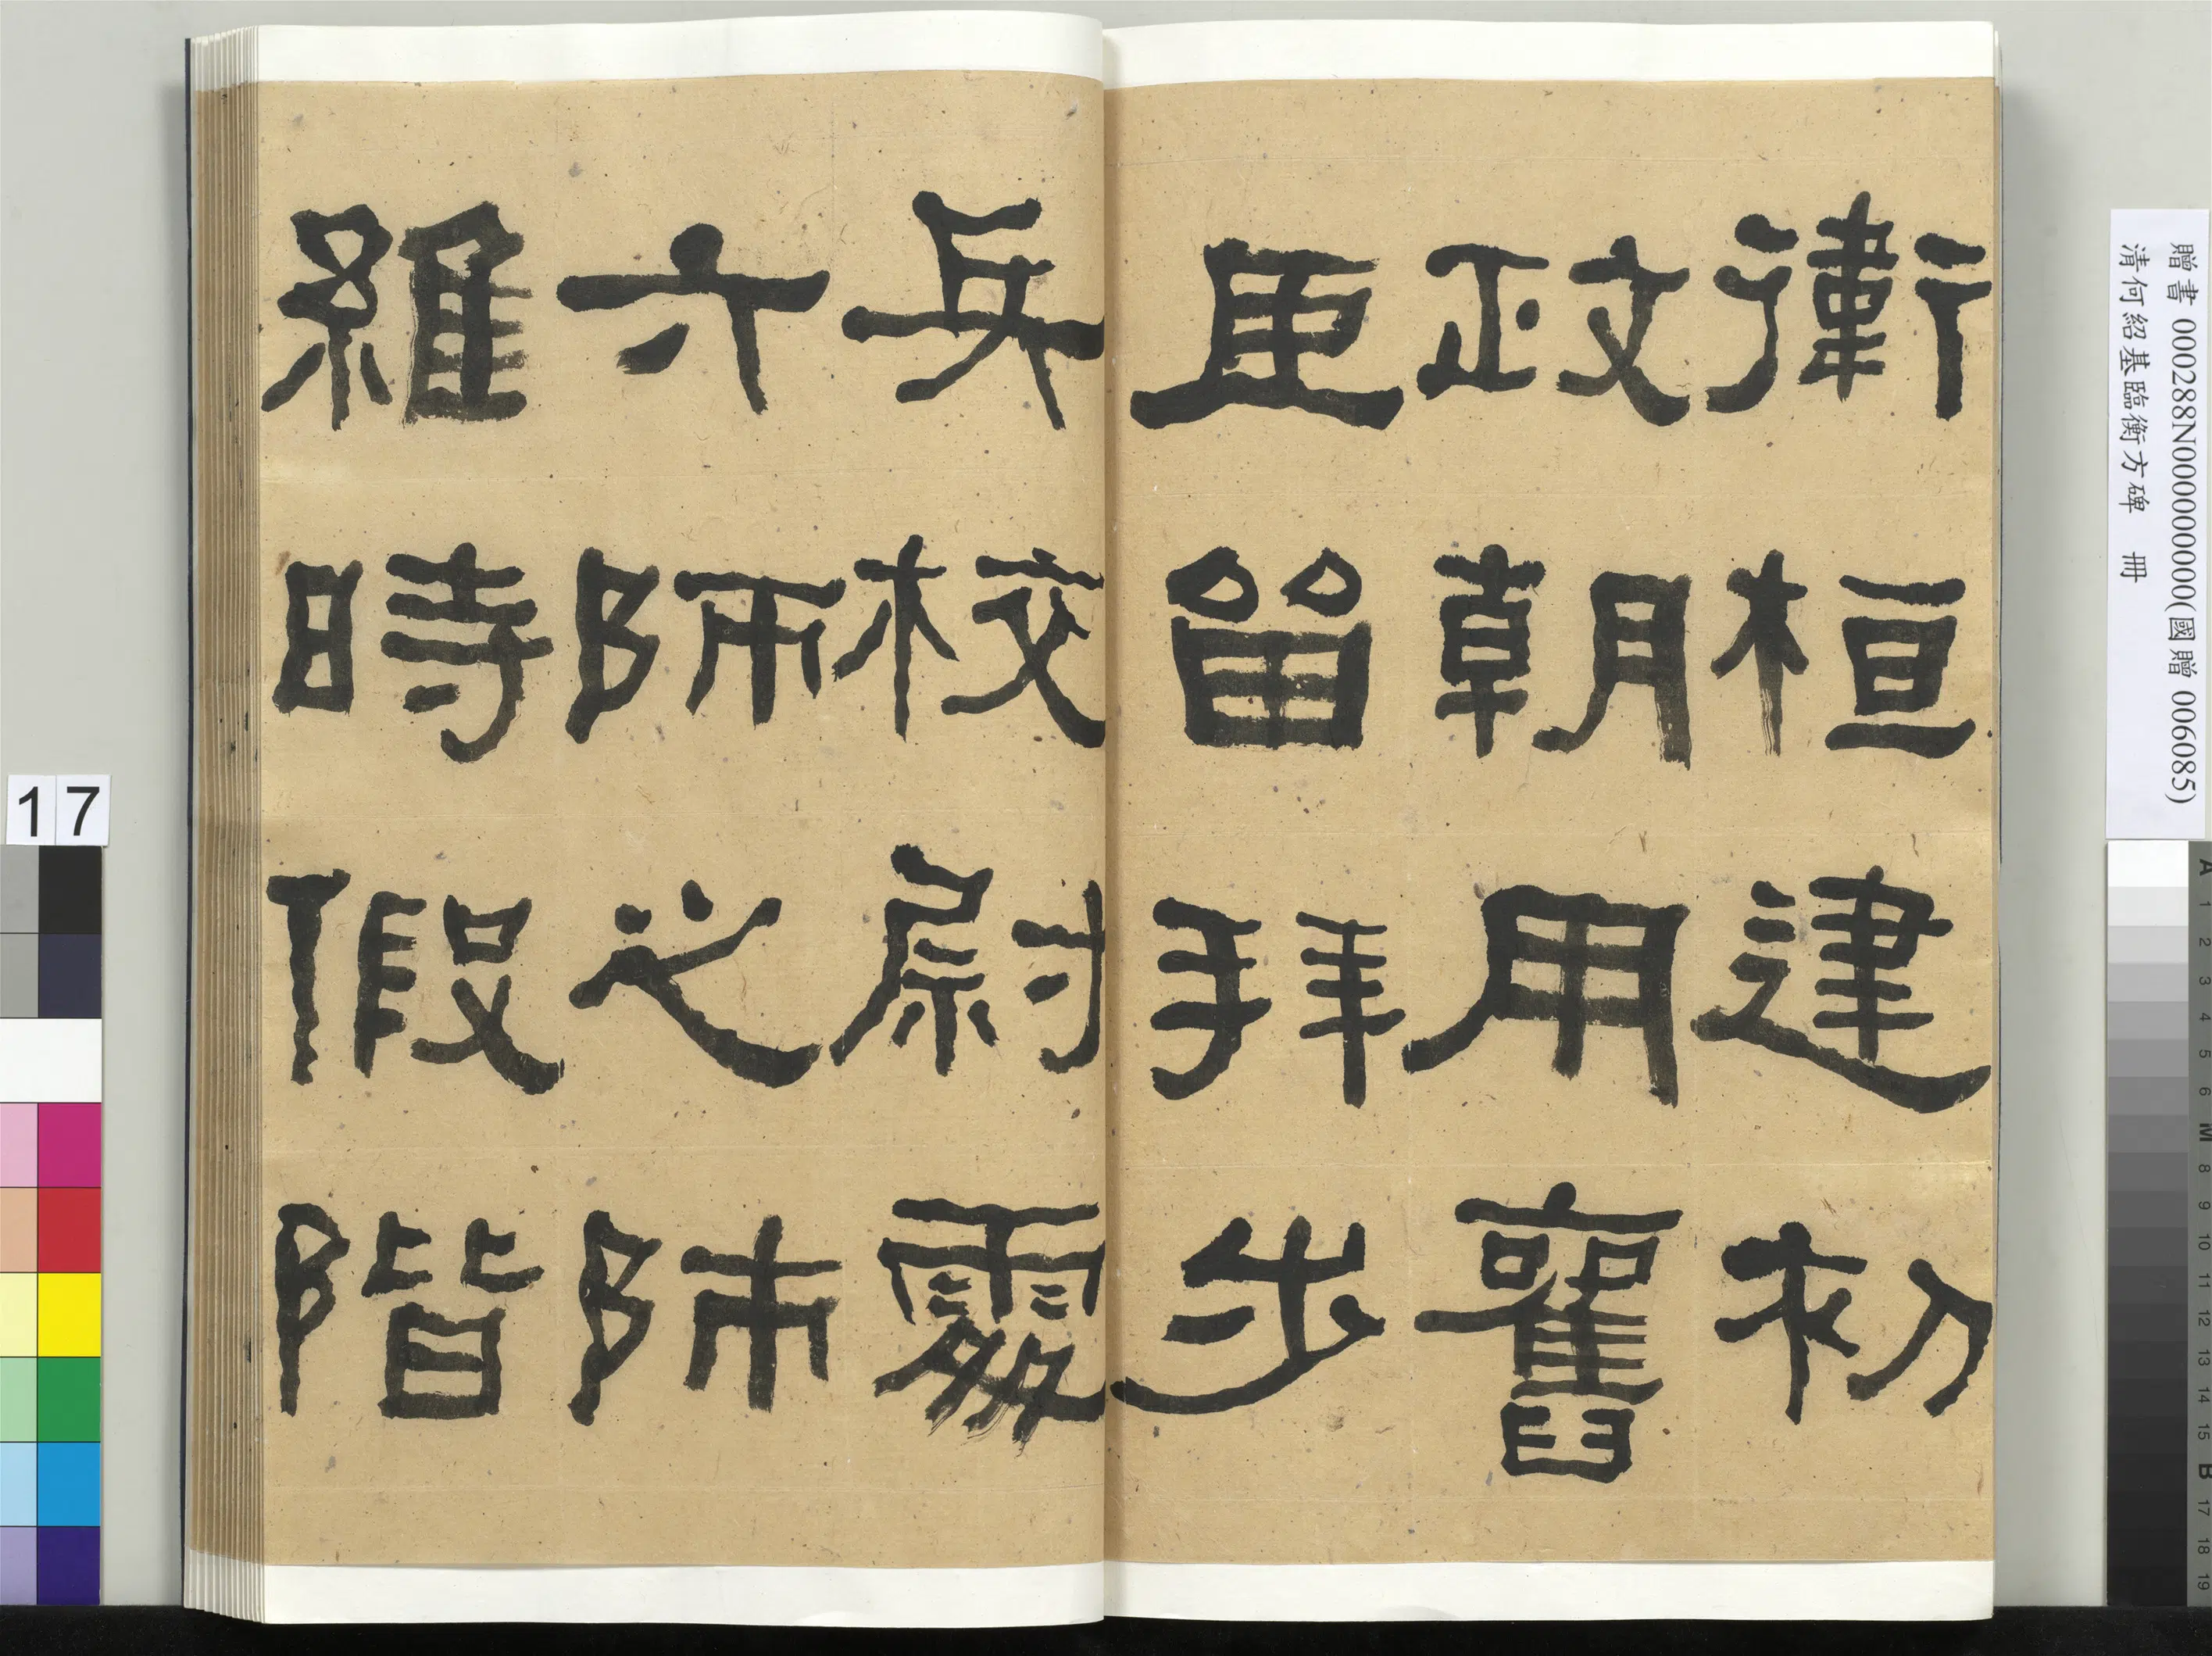 衛桓建初
政朝用舊
臣留拜步
兵校尉處
六師之帥
維時假階
贈書 000288N000000000(國贈 006085)
清何紹基臨衡方碑 冊
17
A 1 2 3 4 5 6 M 8 9 10 11 12 13 14 15 B 17 18 19